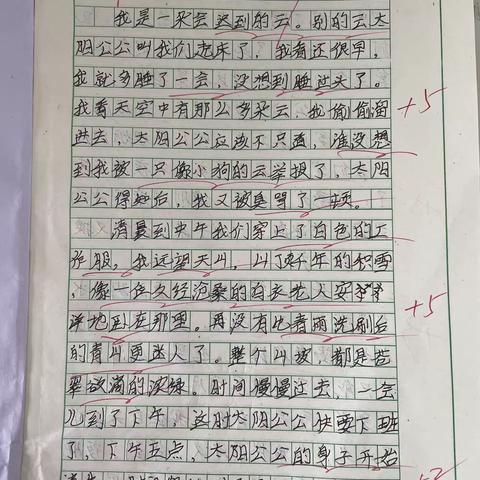 我是一朵会迟到的云。别的云太
阳公公叫我们起床了，我看还很早，
我就多睡了一会，没想到睡过头了。
我看天空中有那么多朵云，我偷偷溜
进去，太阳公公应该不知道，谁没想
到我被一只像小狗的云举报了，太阳
公公得知后，我又被臭骂了一顿。
+5
清晨到中午我们穿上了白色的工
作服，我远望天山，山顶千年的积雪
，像一色久经沧桑的白衣老人安安
详地卧在那里。再没有比着雨洗刷后
的青山更迷人了。整个山坡都是苍
翠欲滴的深绿。时间慢慢过去，一会
儿到了下午，这时太阳公公快要下班
了，下午五点，太阳公公的身子开始
+5
+2